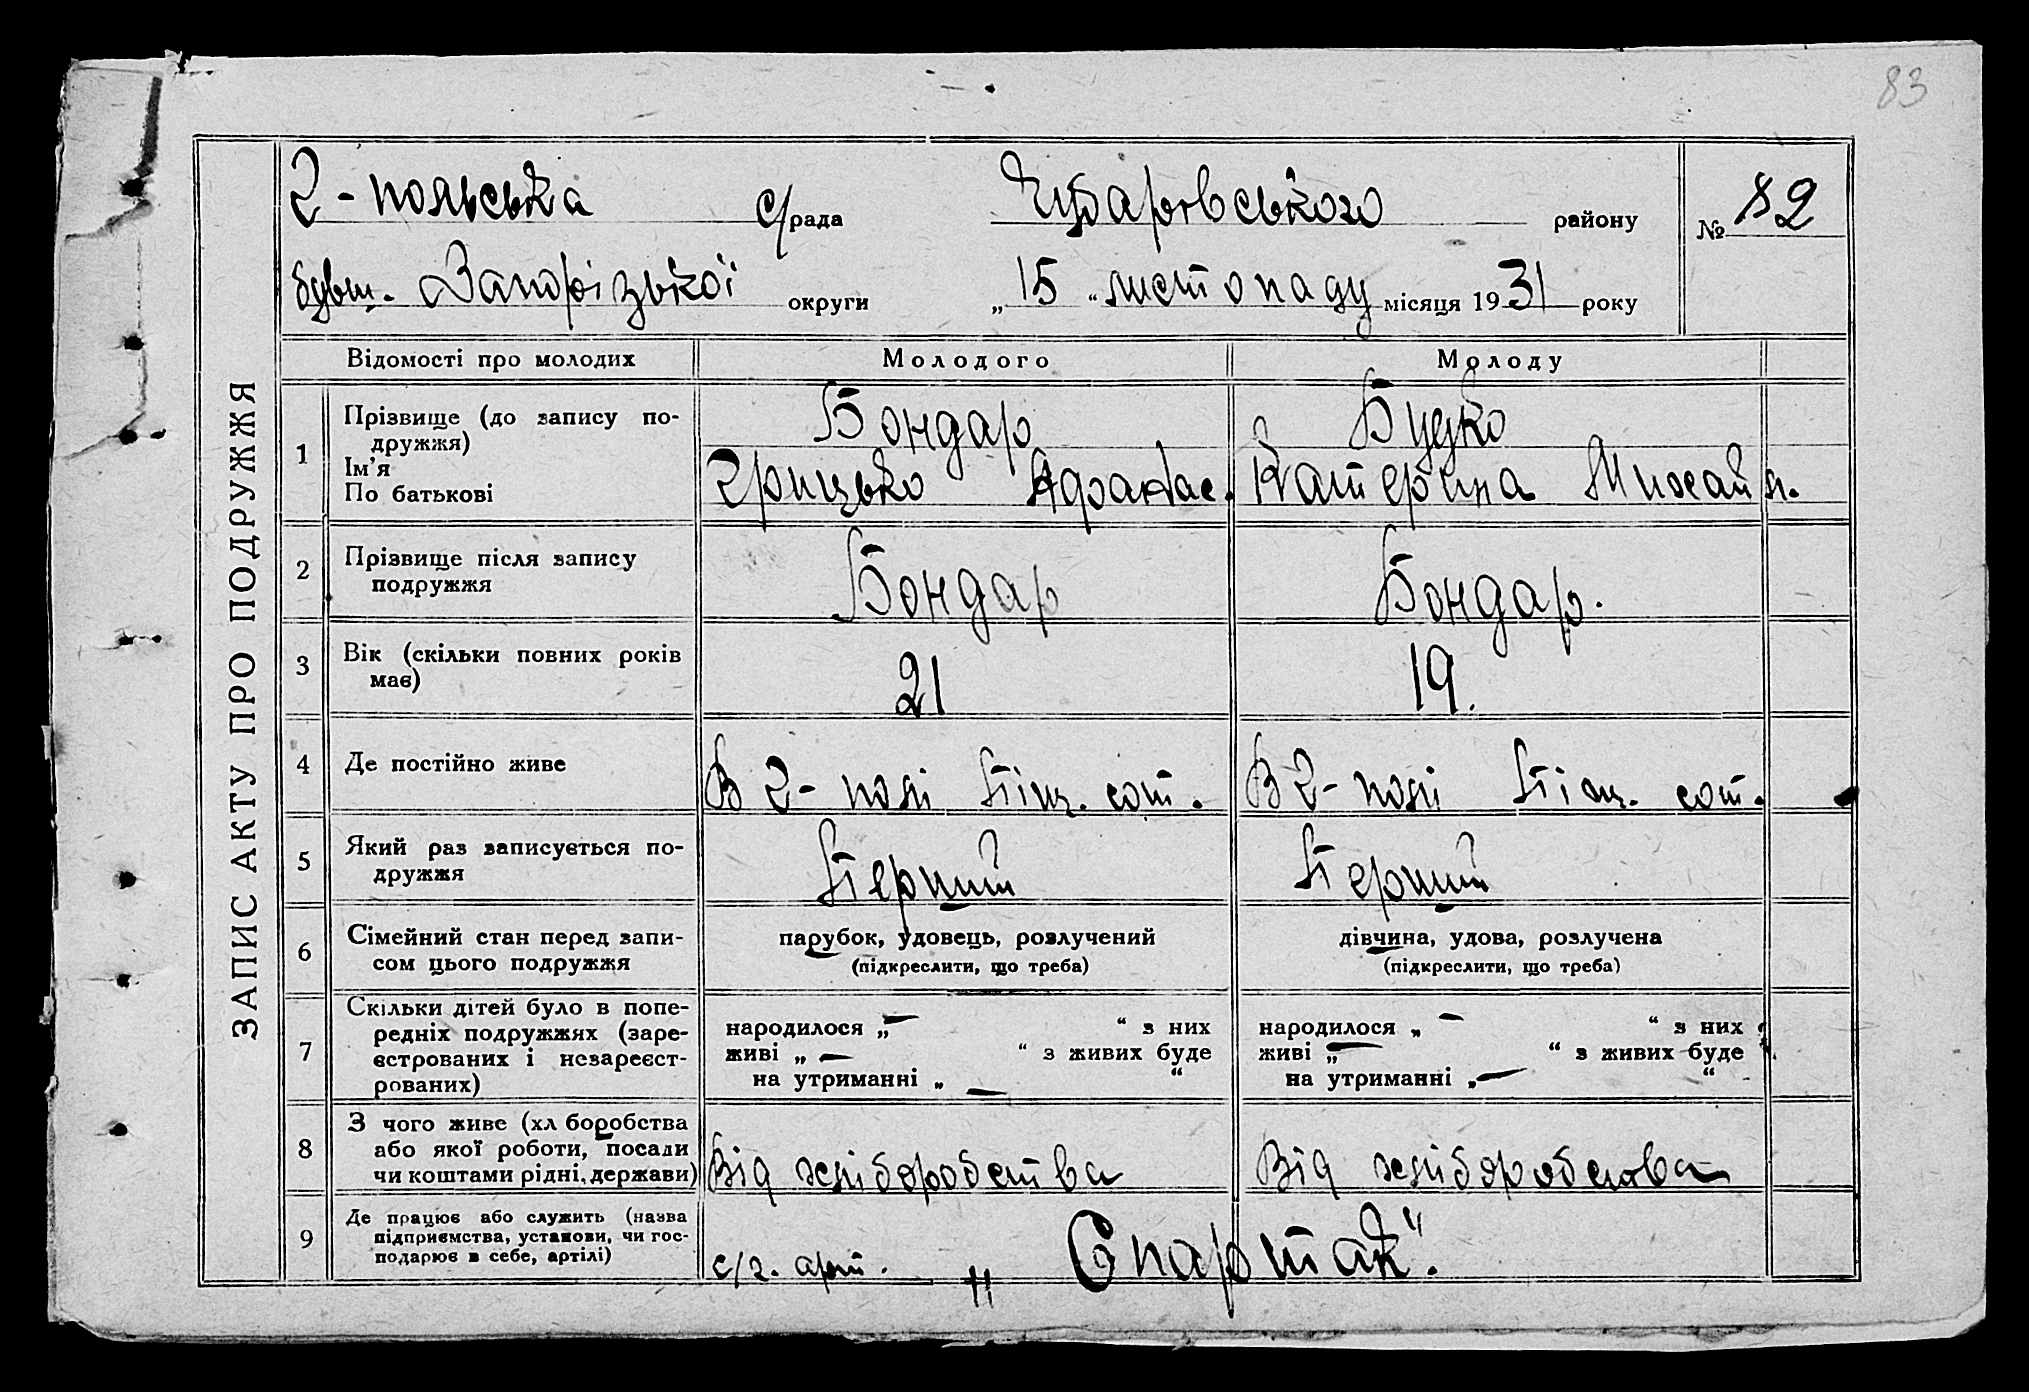 83
ЗАПИС АКТУ ПРО ПОДРУЖЖЯ
2-польська с/рада Чубарівського району № 82
бувш. Запорізької округи „15“ листопаду місяця 1931 року
Відомості про молодих Молодого Молоду
1 Прізвище (до запису подружжя) Бондар Буцко
Ім'я
По батькові Грицько Афанас. Катерина Михайл.
2 Прізвище після запису подружжя Бондар Бондар.
3 Вік (скільки повних років має) 21 19.
4 Де постійно живе В 2-полі сот. В 2-полі сот.
5 Який раз записується подружжя Перший Перший
6 Сімейний стан перед записом цього подружжя парубок, удовець, розлучений дівчина, удова, розлучена
(підкреслити, що треба) (підкреслити, що треба)
7 Скільки дітей було в попередніх подружжях (зареєстрованих і незареєстрованих)
народилося „—“ з них народилося „—“ з них
живі „—“ з живих буде живі „—“ з живих буде
на утриманні „—“ на утриманні „—“
8 З чого живе (хліборобства або якої роботи, посади чи коштами рідні, держави) Від хліборобства Від хліборобства
9 Де працює або служить (назва підприємства, установи, чи господарює в себе, артілі) с/г. арт. „Спартак“.